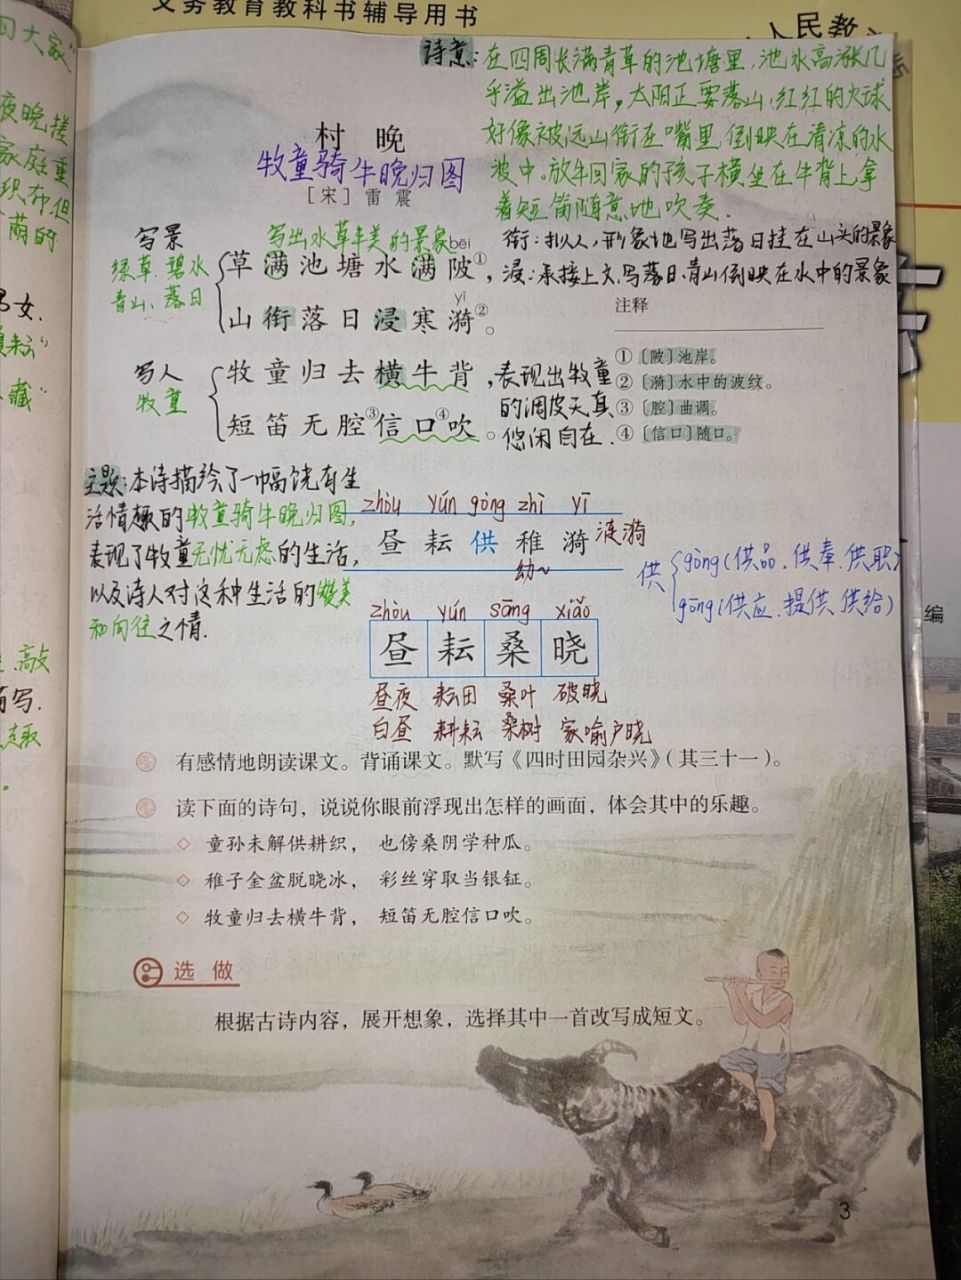 义务教育教科书辅导用书
人民教
诗意:在四周长满青草的池塘里,池水高涨几
乎溢出池岸,太阳正要落山,红红的火球
好像被远山衔在嘴里,倒映在清凉的水
波中。放牛回家的孩子横坐在牛背上,拿
着短笛随意地吹奏.
村晚
牧童骑牛晚归图
[宋]雷震
写景
绿草、碧水
青山、落日
写出水草丰美的景象
bēi
草满池塘水满陂①,
yī
山衔落日浸寒漪②。
衔:拟人,形象地写出落日挂在山头的景象
浸:承接上文,写落日、青山倒映在水中的景象
写人
牧童
牧童归去横牛背,
短笛无腔③信口④吹。
表现出牧童
的调皮天真
悠闲自在.
注释
①〔陂〕池岸。
②〔漪〕水中的波纹。
③〔腔〕曲调。
④〔信口〕随口。
主题:本诗描绘了一幅饶有生
活情趣的牧童骑牛晚归图,
表现了牧童无忧无虑的生活,
以及诗人对这种生活的赞美
和向往之情.
zhòu yún gòng zhì yī
昼 耘 供 稚 漪 涟漪
幼~
供 gòng(供品、供奉、供职)
gōng(供应、提供、供给)
zhòu yún sāng xiǎo
昼 耘 桑 晓
昼夜 耘田 桑叶 破晓
白昼 耕耘 桑树 家喻户晓
有感情地朗读课文。背诵课文。默写《四时田园杂兴》(其三十一)。
读下面的诗句,说说你眼前浮现出怎样的画面,体会其中的乐趣。
◇ 童孙未解供耕织, 也傍桑阴学种瓜。
◇ 稚子金盆脱晓冰, 彩丝穿取当银钲。
◇ 牧童归去横牛背, 短笛无腔信口吹。
选做
根据古诗内容,展开想象,选择其中一首改写成短文。
3
四大家"
夜晚搓
家庭重
织布但
荫的
男女.
藏"
敲
写.
趣
编